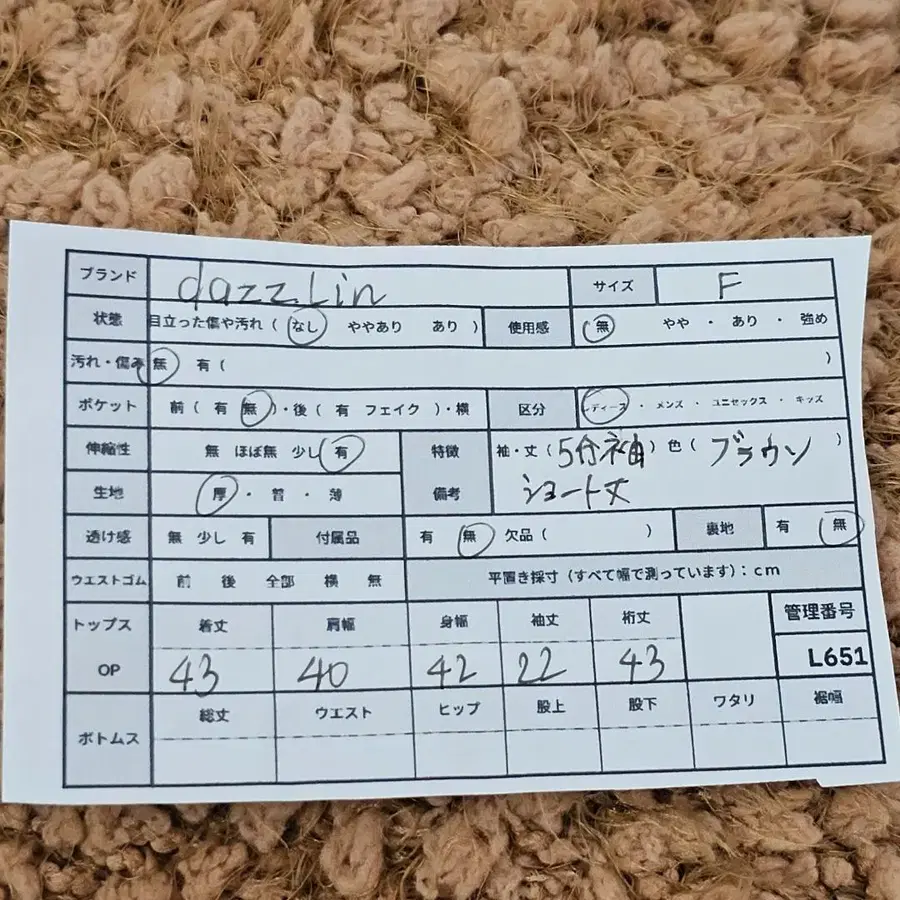 ブランド dazzlin サイズ F
状態 目立った傷や汚れ ( なし ややあり あり ) 使用感 無 やや ・ あり ・ 強め
汚れ・傷み 無 有 ( )
ポケット 前 ( 有 無 )・後 ( 有 フェイク )・横 区分 レディース ・ メンズ ・ ユニセックス ・ キッズ
伸縮性 無 ほぼ無 少し 有 特徴 袖・丈 ( 5分袖 ) 色 ( ブラウン )
生地 厚 ・ 普 ・ 薄 備考 ショート丈
透け感 無 少し 有 付属品 有 無 欠品 ( ) 裏地 有 無
ウエストゴム 前 後 全部 横 無 平置き採寸 (すべて幅で測っています) : cm
トップス 着丈 肩幅 身幅 袖丈 裄丈 管理番号
OP 43 40 42 22 43 L651
ボトムス 総丈 ウエスト ヒップ 股上 股下 ワタリ 裾幅